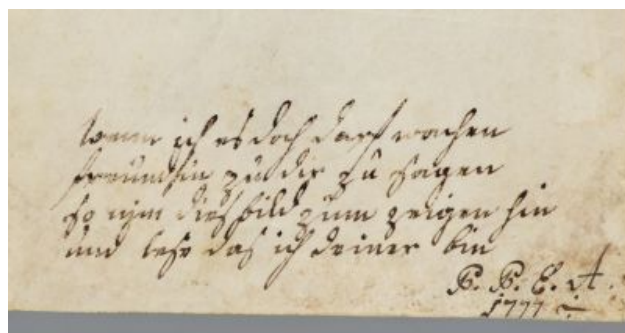 wann ich es doch darf wachen
freundin zu dir zu sagen
so nim dies bild zum zeigen hin
und das ich deiner bin
B. B. E. A.
1777